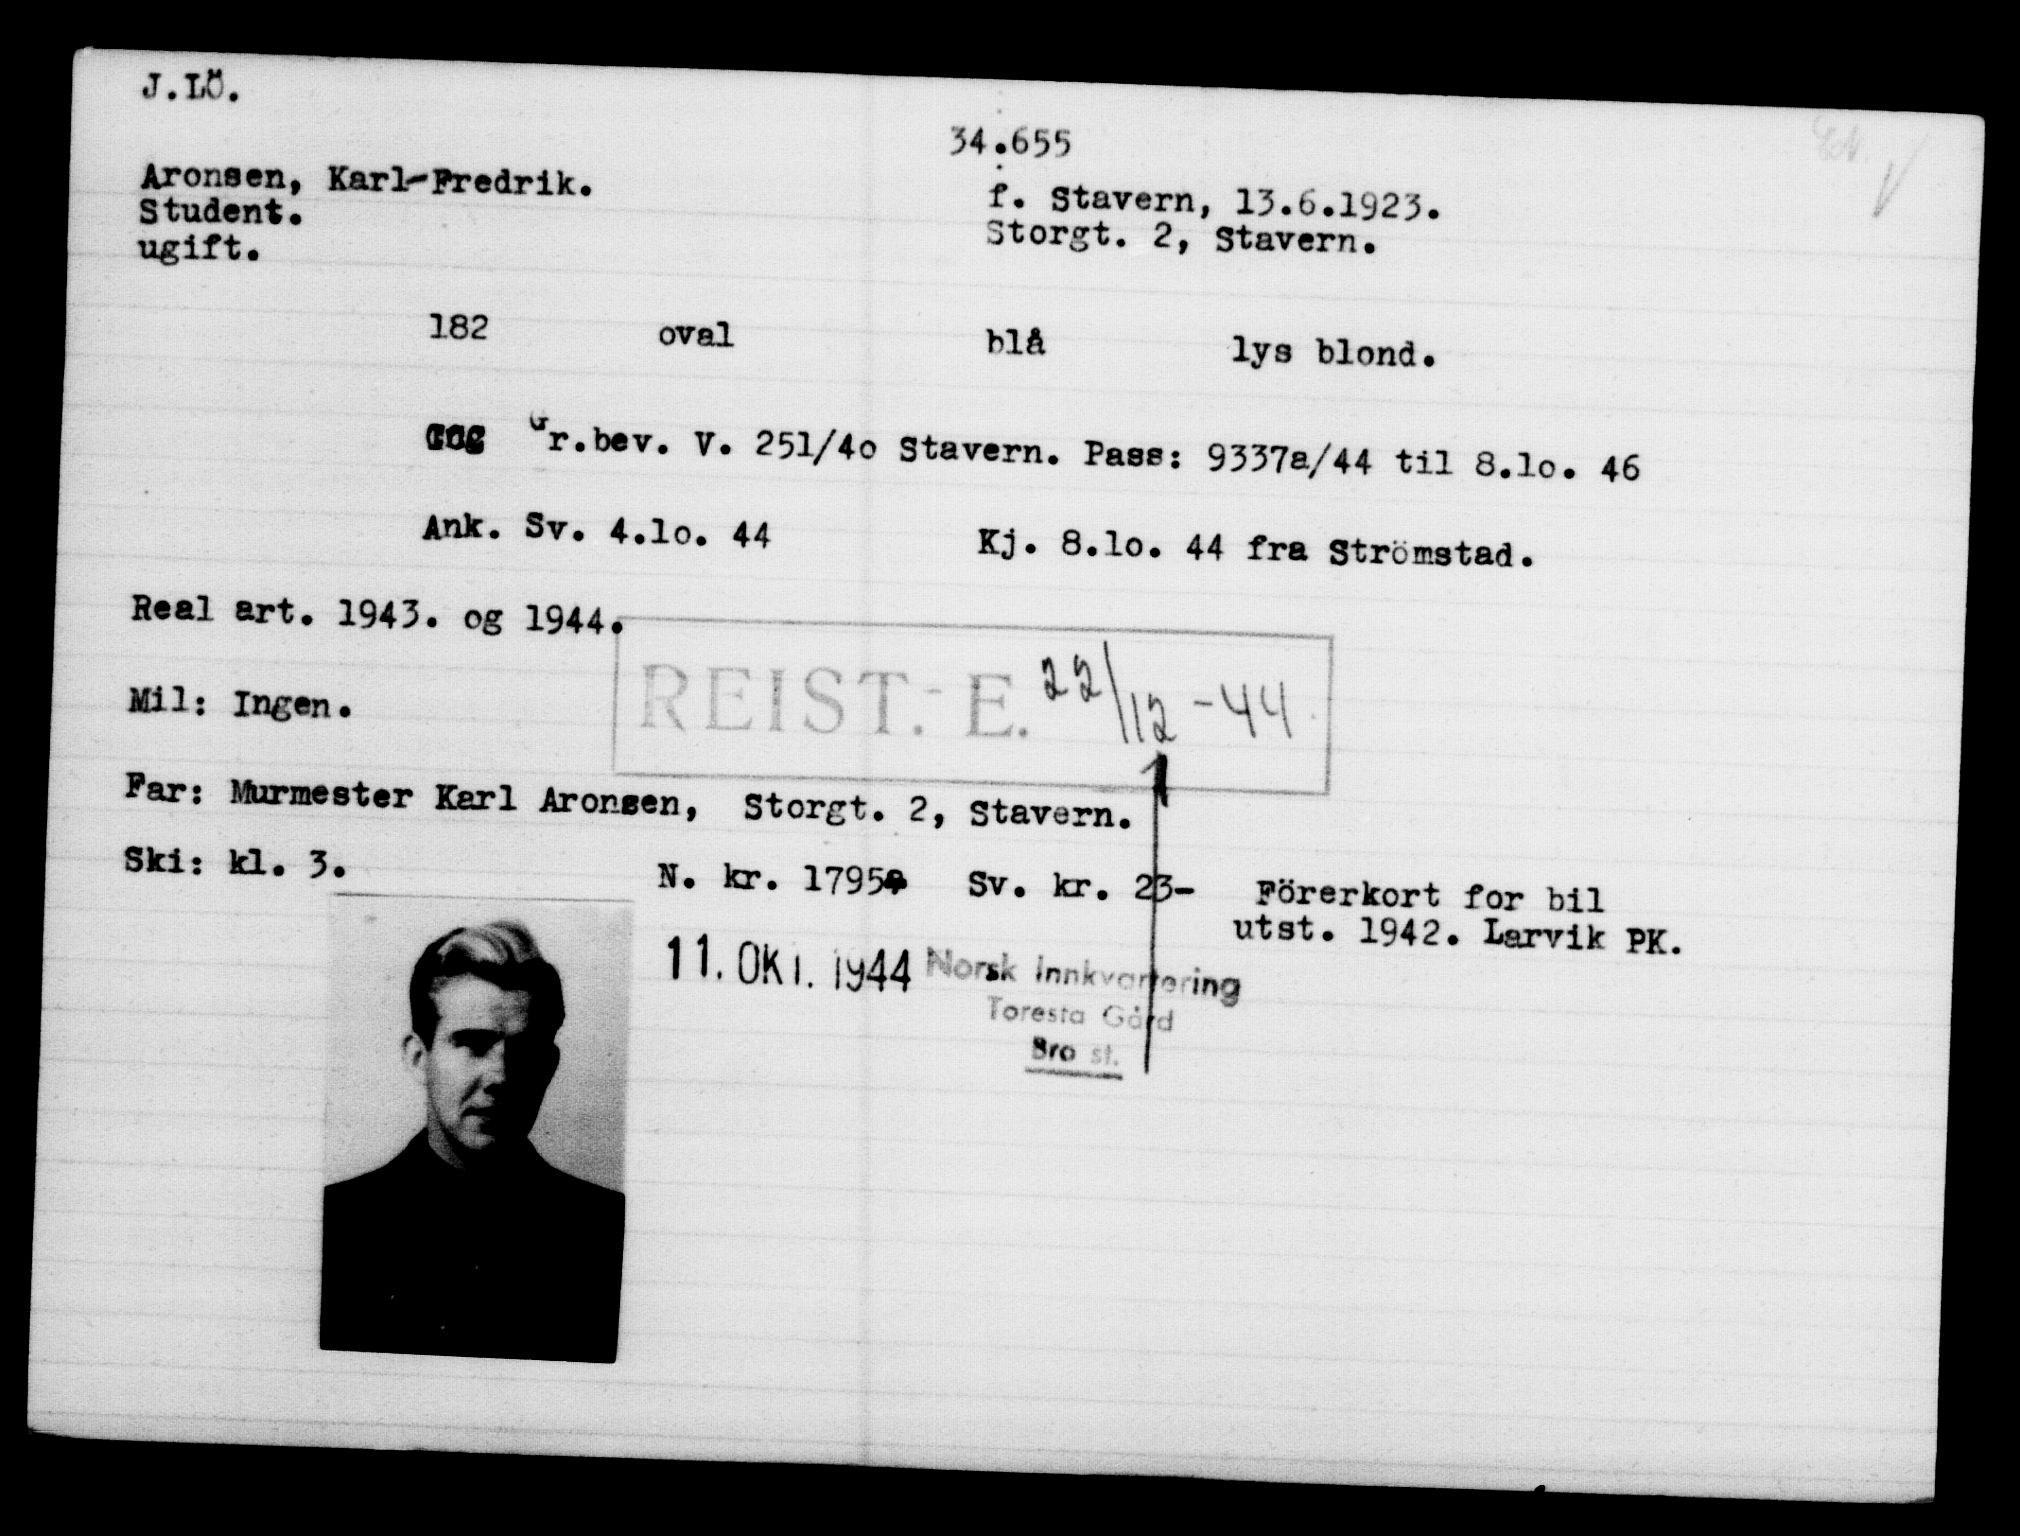 J.LÖ.
34.655
Aronsen, Karl-Fredrik.
f. Stavern, 13.6.1923.
Student.
Storgt. 2, Stavern.
ugift.
182 oval blå lys blond.
Gr.bev. V. 251/4o Stavern. Pass: 9337a/44 til 8.lo. 46
Ank. Sv. 4.lo. 44 Kj. 8.lo. 44 fra Strömstad.
Real art. 1943. og 1944.
REIST.- E. 22/12-44
Mil: Ingen.
Far: Murmester Karl Aronsen, Storgt. 2, Stavern.
Ski: kl. 3. N. kr. 1795 Sv. kr. 23- Förerkort for bil
utst. 1942. Larvik PK.
11. OKT. 1944 Norsk Innkvartering
Toresta Gård
Bro st.